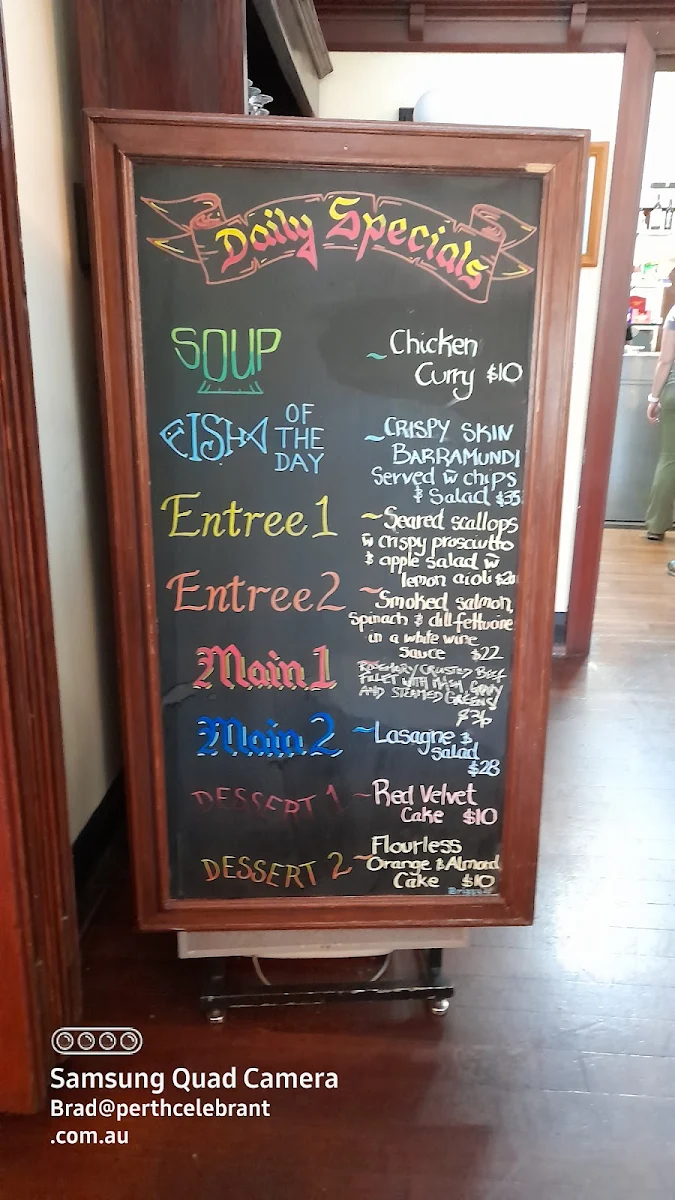 Daily Specials
SOUP ~ Chicken
Curry $10
FISH OF THE DAY ~ CRISPY SKIN
BARRAMUNDI
Served w̄ chips
& Salad $35
Entree 1 ~ Seared scallops
w̄ crispy prosciutto
& apple salad w̄
lemon aioli
Entree 2 ~ Smoked salmon,
Spinach & dill fettucine
in a white wine
Sauce $22
Main 1 ROSEMARY CRUSTED BEEF
FILLET WITH MASH, GRAVY
AND STEAMED GREENS!
$36
Main 2 ~ Lasagne &
Salad
$28
DESSERT 1 ~ Red Velvet
Cake $10
DESSERT 2 ~ Flourless
Orange & Almond
Cake $10
Samsung Quad Camera
Brad@perthcelebrant
.com.au